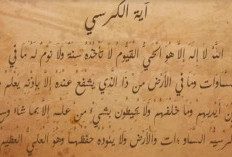 آية الكرسي
اللهُ لا إله إلا هو الحيُّ القيُّوم لا تأخُذُهُ سِنةٌ ولا نومٌ لهُ ما في
السماوات وما في الأرض من ذا الذي يشفعُ عندهُ إلا بإذنه يعلمُ
بين أيديهم وما خلفهم ولا يحيطون بشيءٍ من علمه إلا بما شاء وسع
كرسيُّهُ السماوات والأرض ولا يئوده حفظهما وهو العلي العظيم